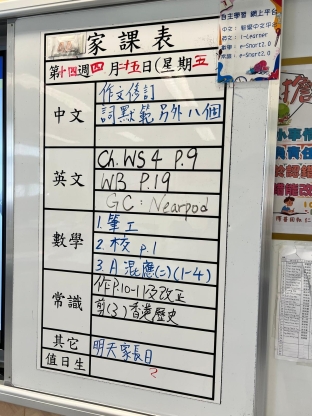 家課表
第十四週四月廿五日(星期五
中文
作文修訂
詞默範另外八個
英文
Ch. WS 4 P.9
WB P.19
GC: Nearpod
數學
1. 筆工
2. 木交 p.1
3. A 混應(二)(1-4)
常識
作P.10-11及改正
剪(3)香港歷史
其它
明天家長日
值日生
2
自主學習 網上平台
i-Learner
e-Short2.0
e-Short2.0